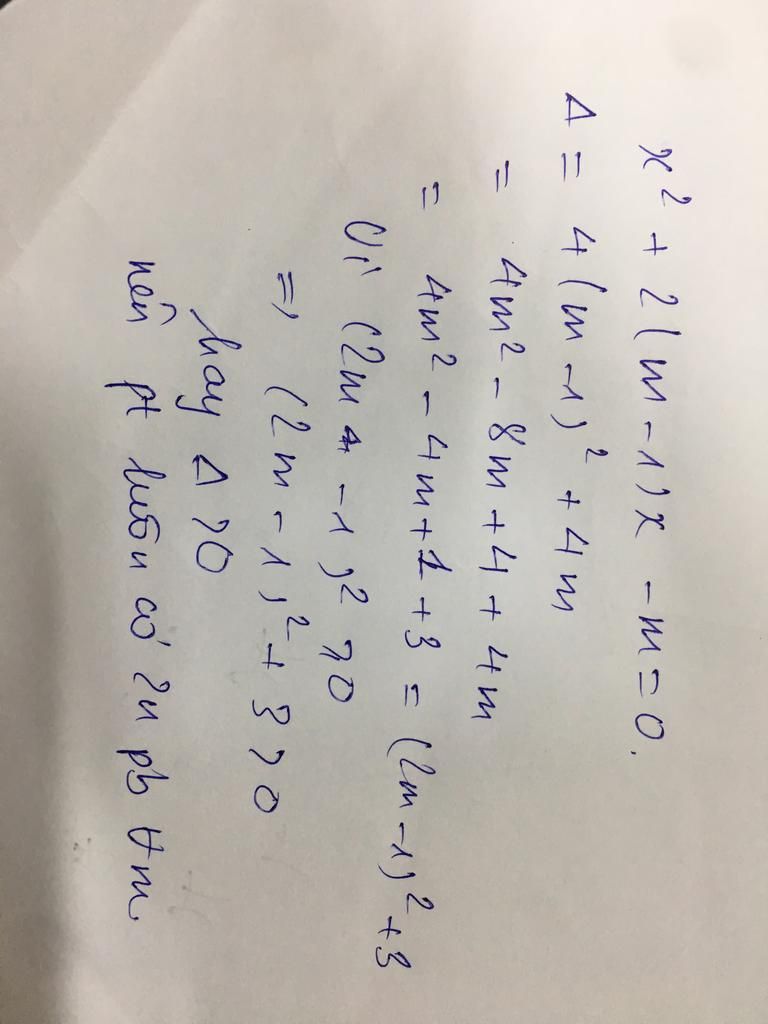 x² + 2(m - 1)x - m = 0.
Δ = 4(m - 1)² + 4m
= 4m² - 8m + 4 + 4m
= 4m² - 4m + 1 + 3 = (2m - 1)² + 3
Vì (2m - 1)² ≥ 0
=> (2m - 1)² + 3 > 0
hay Δ > 0
nên pt luôn có 2n pb ∀m.